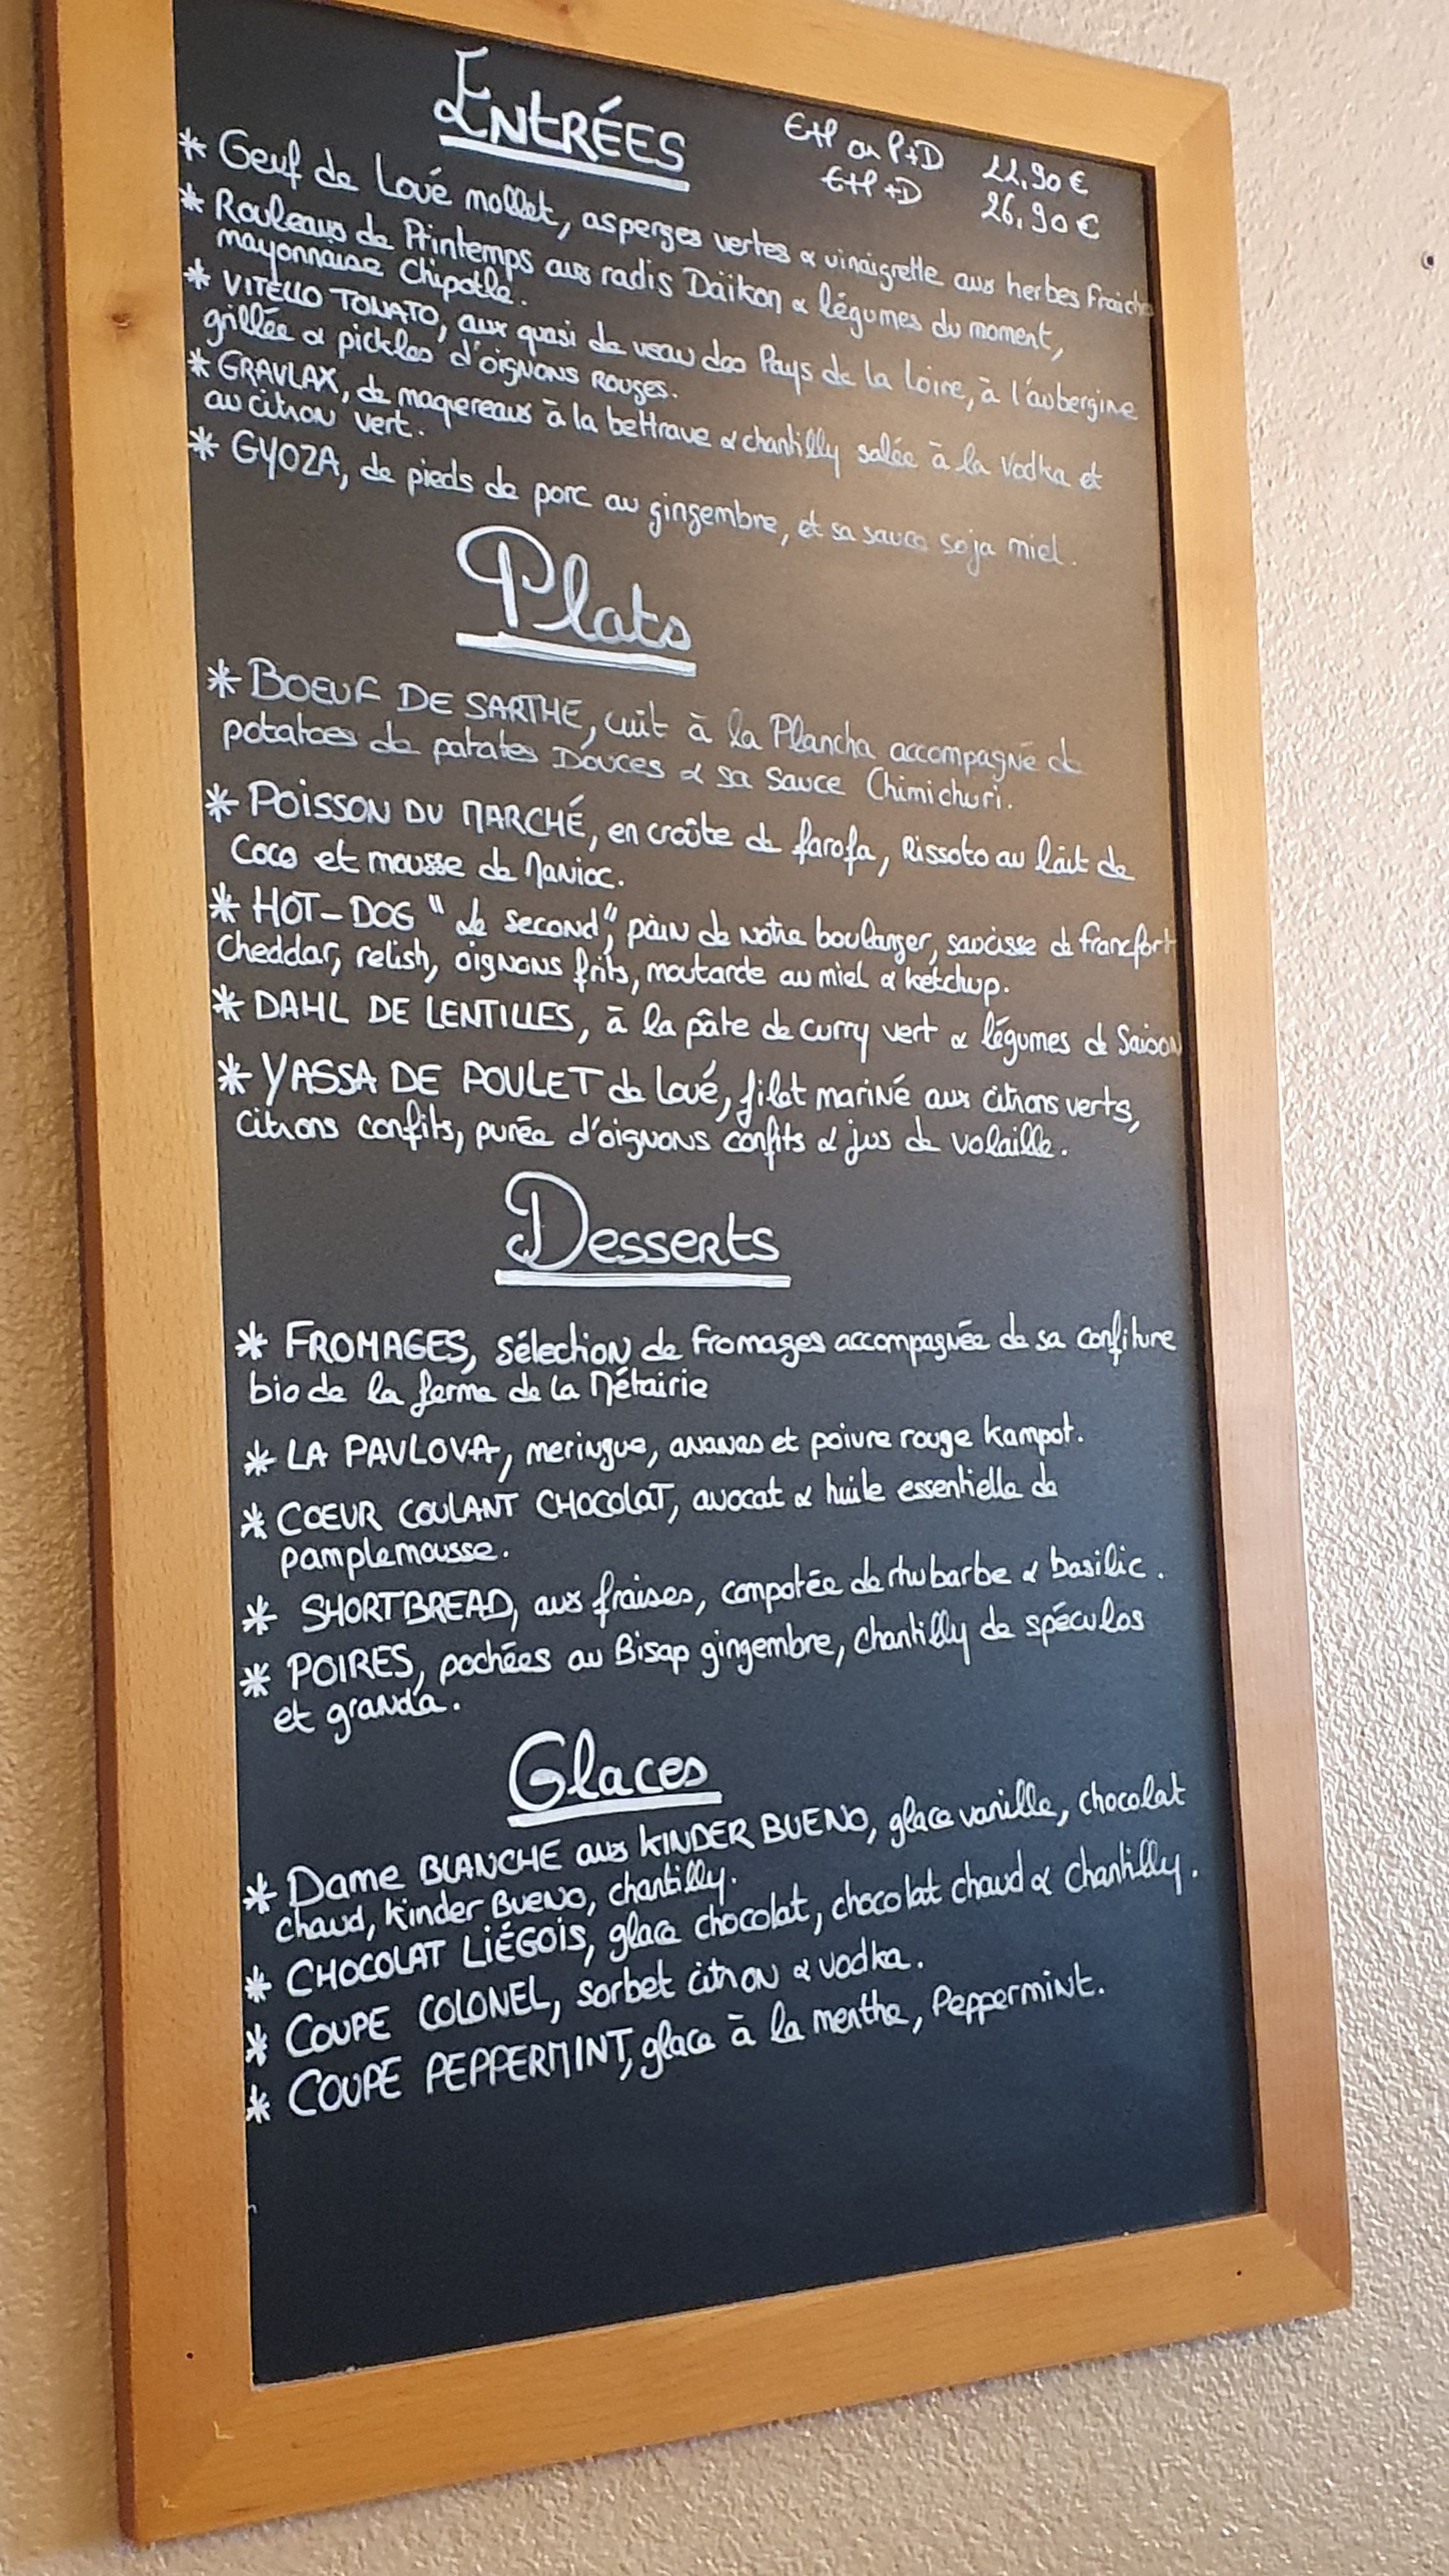 ENTRÉES
E+P ou P+D 22,90 €
E+P+D 26,90 €
* Oeuf de Loué mollet, asperges vertes & vinaigrette aux herbes fraiches
* Rouleaux de Printemps aux radis Daïkon & légumes du moment,
mayonnaise Chipotle.
* VITELLO TONATO, aux quasi de veau des Pays de la Loire, à l'aubergine
grillée & pickles d'oignons Rouges.
* GRAVLAX, de maquereaux à la bettrave & chantilly salée à la Vodka et
au citron vert.
* GYOZA, de pieds de porc au gingembre, et sa sauce soja miel.
Plats
* BOEUF DE SARTHE, cuit à la Plancha accompagné de
potatoes de patates Douces & sa Sauce Chimichuri.
* POISSON DU MARCHÉ, en croûte de farofa, Rissoto au lait de
Coco et mousse de Manioc.
* HOT-DOG "Le Second", pain de notre boulanger, saucisse de francfort
Cheddar, relish, oignons frits, moutarde au miel & ketchup.
* DAHL DE LENTILLES, à la pâte de curry vert & légumes de Saison
* YASSA DE POULET de Loué, filet mariné aux citrons verts,
citrons confits, purée d'oignons confits & jus de volaille.
Desserts
* FROMAGES, sélection de fromages accompagnée de sa confiture
bio de la ferme de la Métairie
* LA PAVLOVA, meringue, ananas et poivre rouge kampot.
* COEUR COULANT CHOCOLAT, avocat & huile essentielle de
pamplemousse.
* SHORTBREAD, aux fraises, compotée de rhubarbe & basilic.
* POIRES, pochées au Bisap gingembre, chantilly de spéculos
et granola.
Glaces
* Dame BLANCHE aux KINDER BUENO, glace vanille, chocolat
chaud, kinder Bueno, chantilly.
* CHOCOLAT LIÉGOIS, glace chocolat, chocolat chaud & chantilly.
* COUPE COLONEL, sorbet citron & vodka.
* COUPE PEPPERMINT, glace à la menthe, Peppermint.